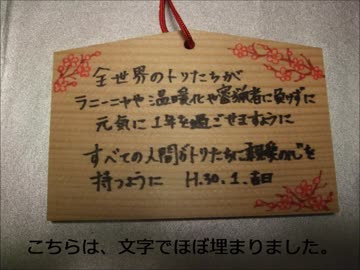 全世界のトリたちが
ラニーニャや温暖化や密猟者に負けずに
元気に1年を過ごせますように
すべての人間がトリたちに 心を
持つように H.30.1.吉日
こちらは、文字でほぼ埋まりました。